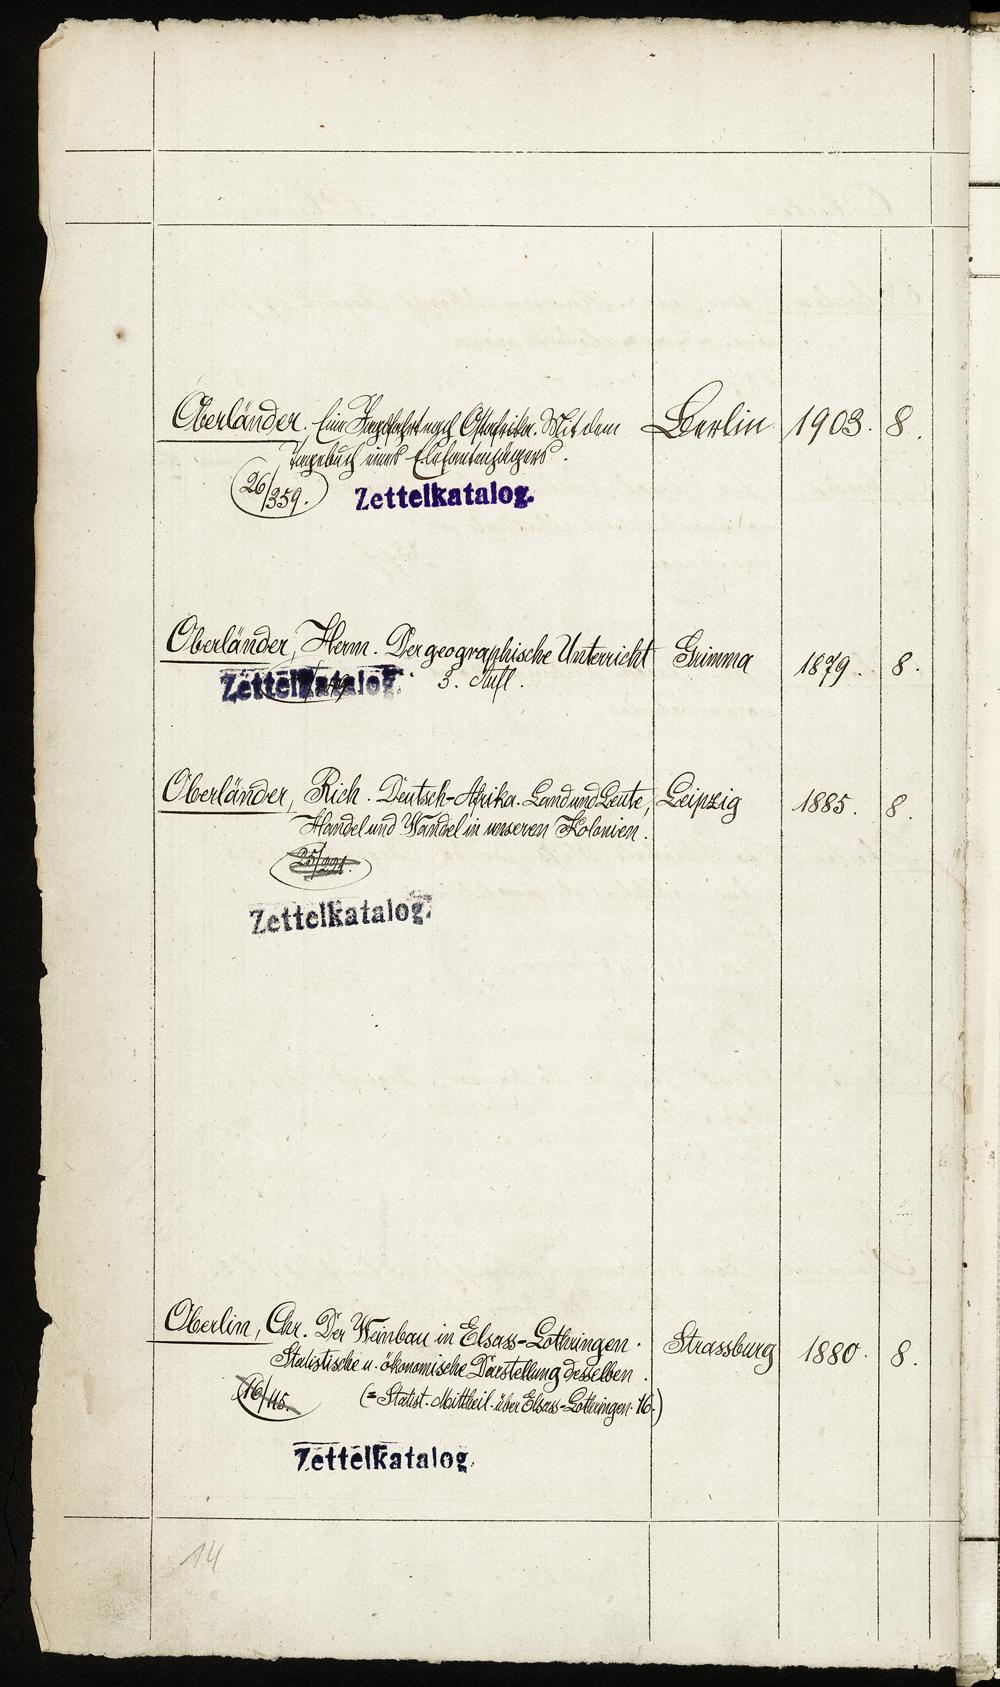 Oberländer. Eine Jagdfahrt nach Ostafrika. Mit dem Berlin 1903. 8.
Tagebuch eines Elefantenjägers.
26/359. Zettelkatalog.
Oberländer, Herm. Der geographische Unterricht Grimma 1879. 8.
Zettelkatalog. 3. Aufl.
Oberländer, Rich. Deutsch-Afrika. Land und Leute, Leipzig 1885. 8.
Handel und Wandel in unseren Kolonien.
25/221.
Zettelkatalog.
Oberlin, Chr. Der Weinbau in Elsass-Lothringen. Strassburg 1880. 8.
Statistische u. ökonomische Darstellung desselben.
16/115. (= Statist. Mittheil. über Elsass-Lothringen. 16.)
Zettelkatalog.
14